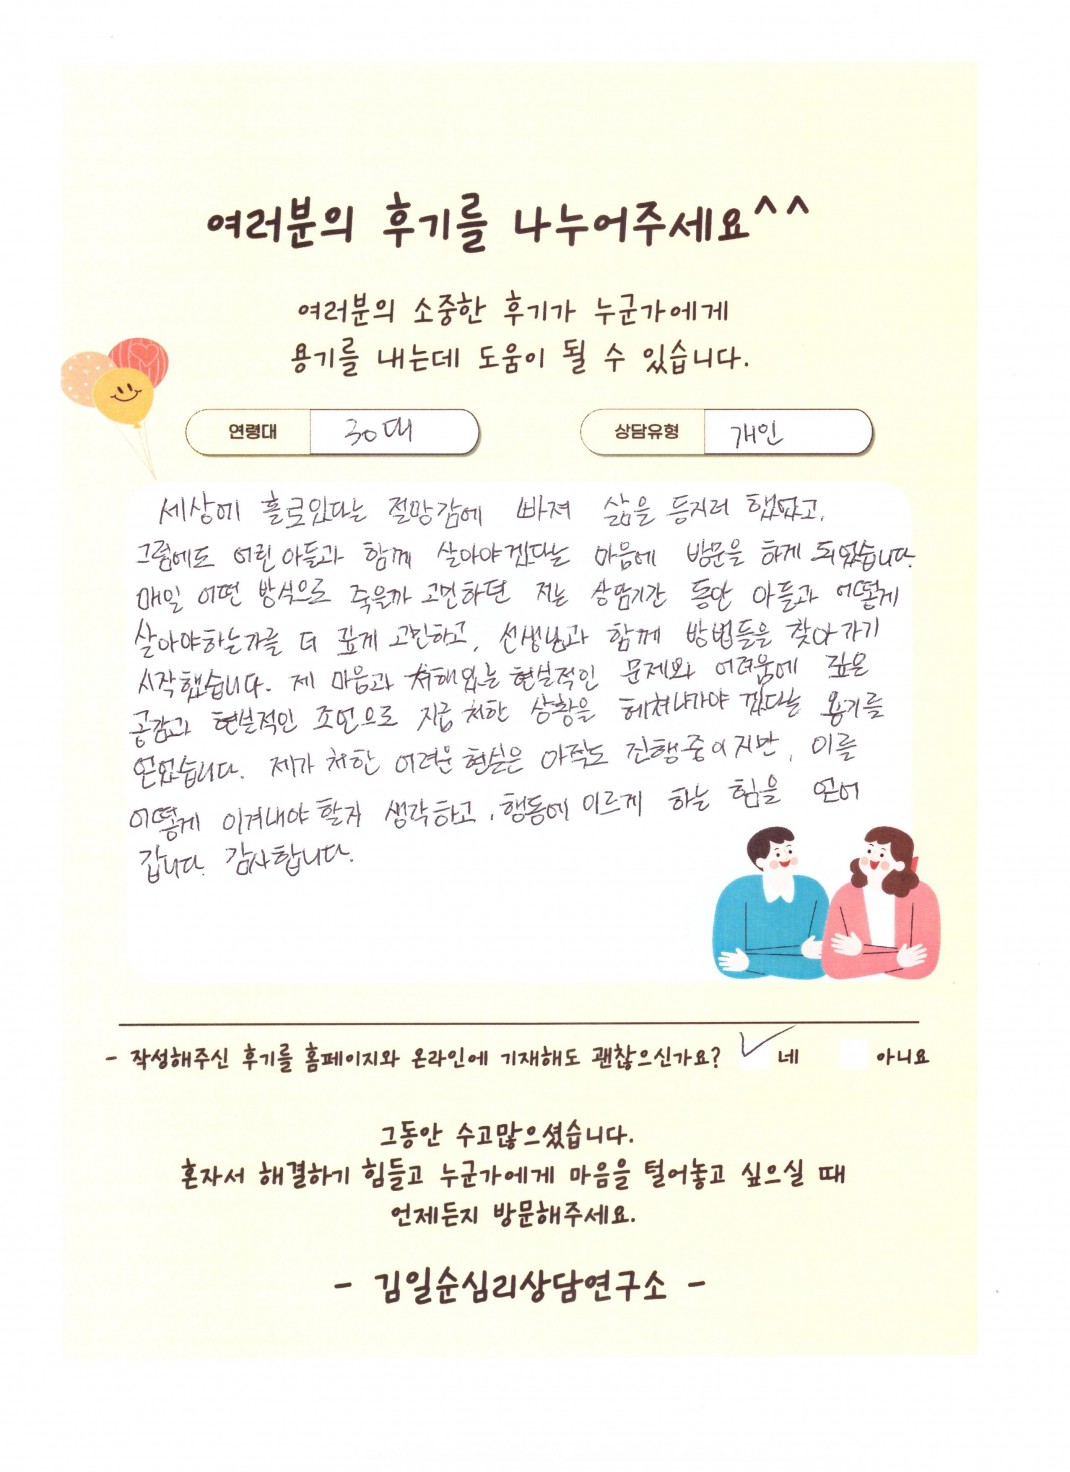 여러분의 후기를 나누어주세요^^
여러분의 소중한 후기가 누군가에게
용기를 내는데 도움이 될 수 있습니다.
연령대 30대 상담유형 개인
세상에 홀로있다는 절망감에 빠져 삶을 등지려 했었고,
그럼에도 어린 아들과 함께 살아야겠다는 마음에 방문을 하게 되었습니다.
매일 어떤 방식으로 죽을까 고민하던 저는 상담기간 동안 아들과 어떻게
살아야하는가를 더 깊게 고민하고, 선생님과 함께 방법들을 찾아가기
시작했습니다. 제 마음과 처해있는 현실적인 문제와 어려움에 깊은
공감과 현실적인 조언으로 지금 처한 상황을 헤쳐나가야 겠다는 용기를
얻었습니다. 제가 처한 어려운 현실은 아직도 진행중이지만, 이를
어떻게 이겨내야 할지 생각하고, 행동에 이르게 하는 힘을 얻어
갑니다. 감사합니다.
- 작성해주신 후기를 홈페이지와 온라인에 기재해도 괜찮으신가요? ✓ 네 아니요
그동안 수고많으셨습니다.
혼자서 해결하기 힘들고 누군가에게 마음을 털어놓고 싶으실 때
언제든지 방문해주세요.
- 김일순심리상담연구소 -